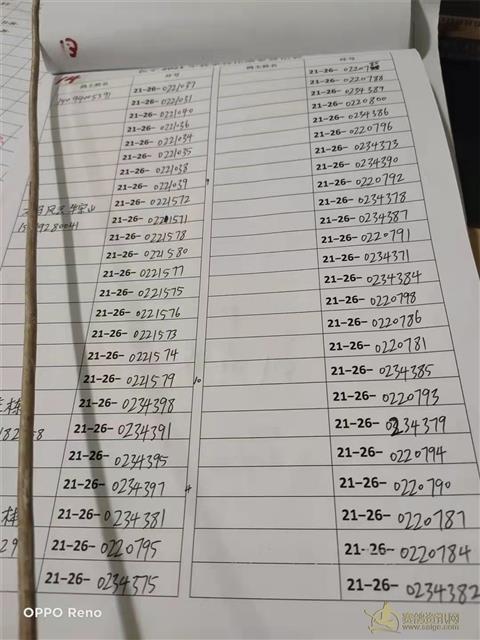 鸽主姓名
环号
鸽主姓名
环号
21-26-0221037
21-26-0221031
21-26-0221040
21-26-0221036
21-26-0221034
21-26-0221035
21-26-0221038
21-26-0221039
21-26-0221572
21-26-0221571
21-26-0221578
21-26-0221580
21-26-0221577
21-26-0221575
21-26-0221576
21-26-0221573
21-26-0221574
21-26-0221579
10
21-26-0234398
21-26-0234391
21-26-0234395
21-26-0234397
4
21-26-0234381
21-26-0220795
21-26-0234375
21-26-0220788
21-26-0234389
21-26-0220800
21-26-0234386
21-26-0220796
21-26-0234373
21-26-0234390
21-26-0220792
21-26-0234378
21-26-0234387
21-26-0220791
21-26-0234371
21-26-0234384
21-26-0220798
21-26-0220786
21-26-0220781
21-26-0234385
21-26-0220793
21-26-0234379
21-26-0220794
21-26-0220790
21-26-0220787
21-26-0220784
21-26-0234382
OPPO Reno
赛鸽资讯网
www.saige.com